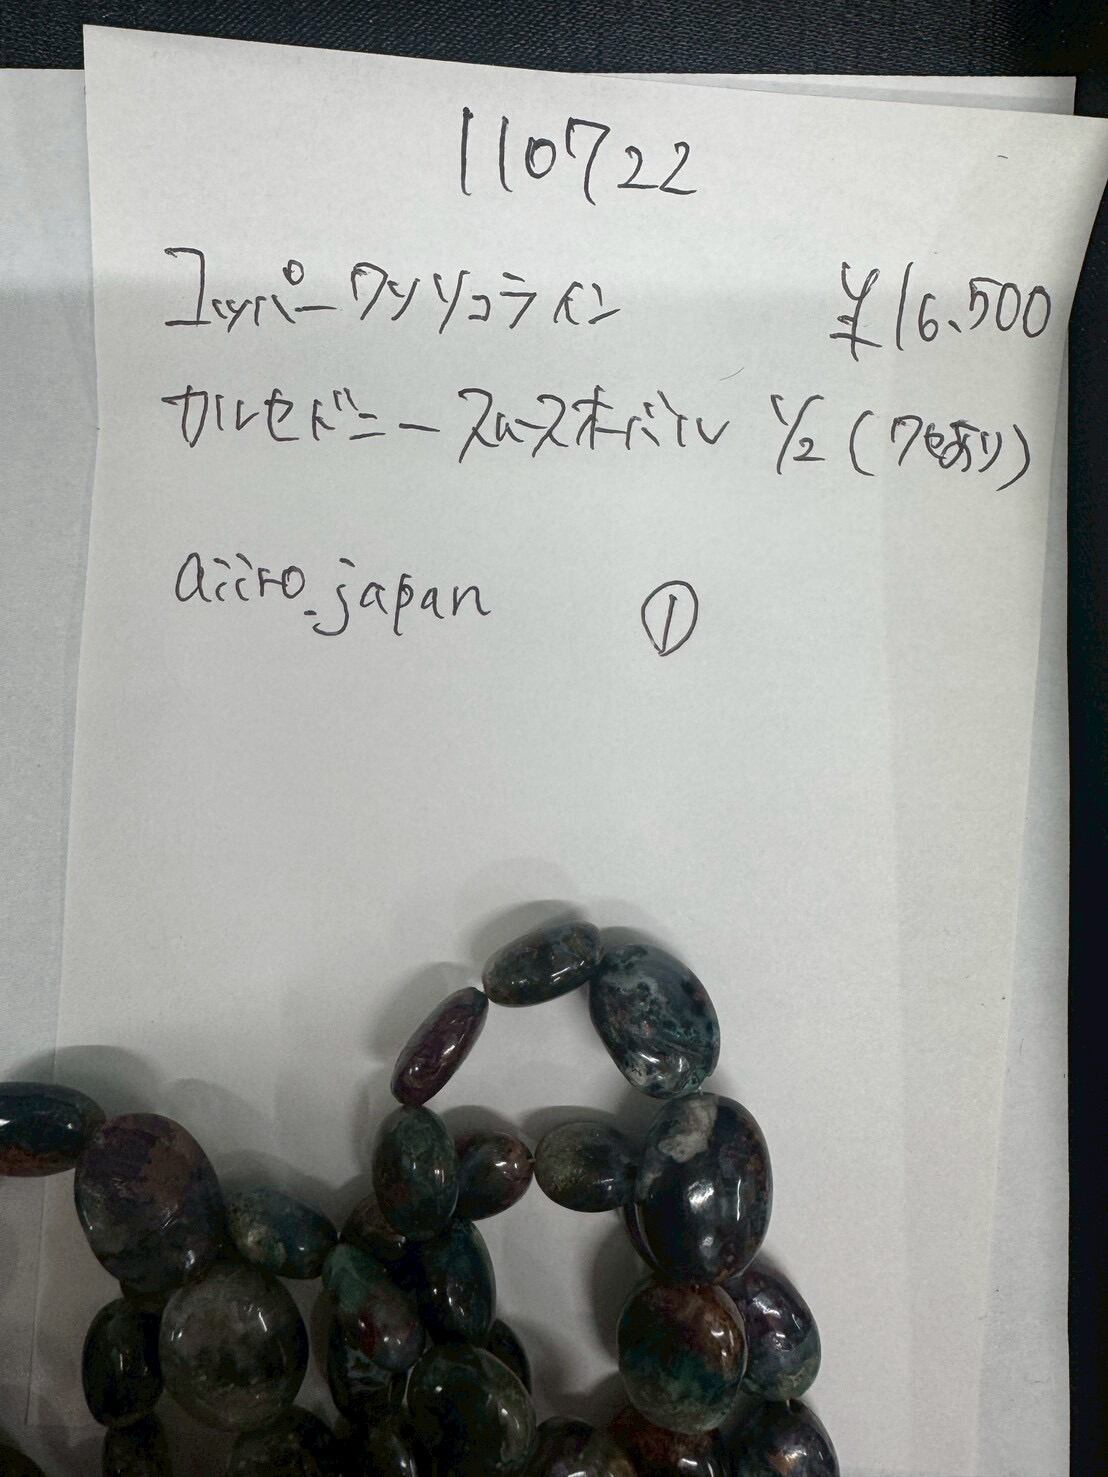 110722
コッパークリソコライン ¥16.500
カルセドニースムースオーバル 1/2(クセあり)
aiiro_japan ①